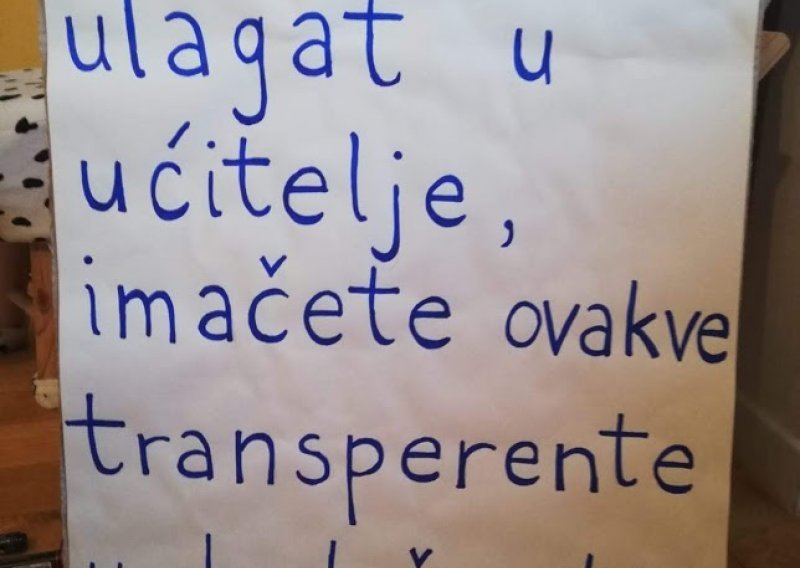 ulagat u
ućitelje,
imačete ovakve
transperente